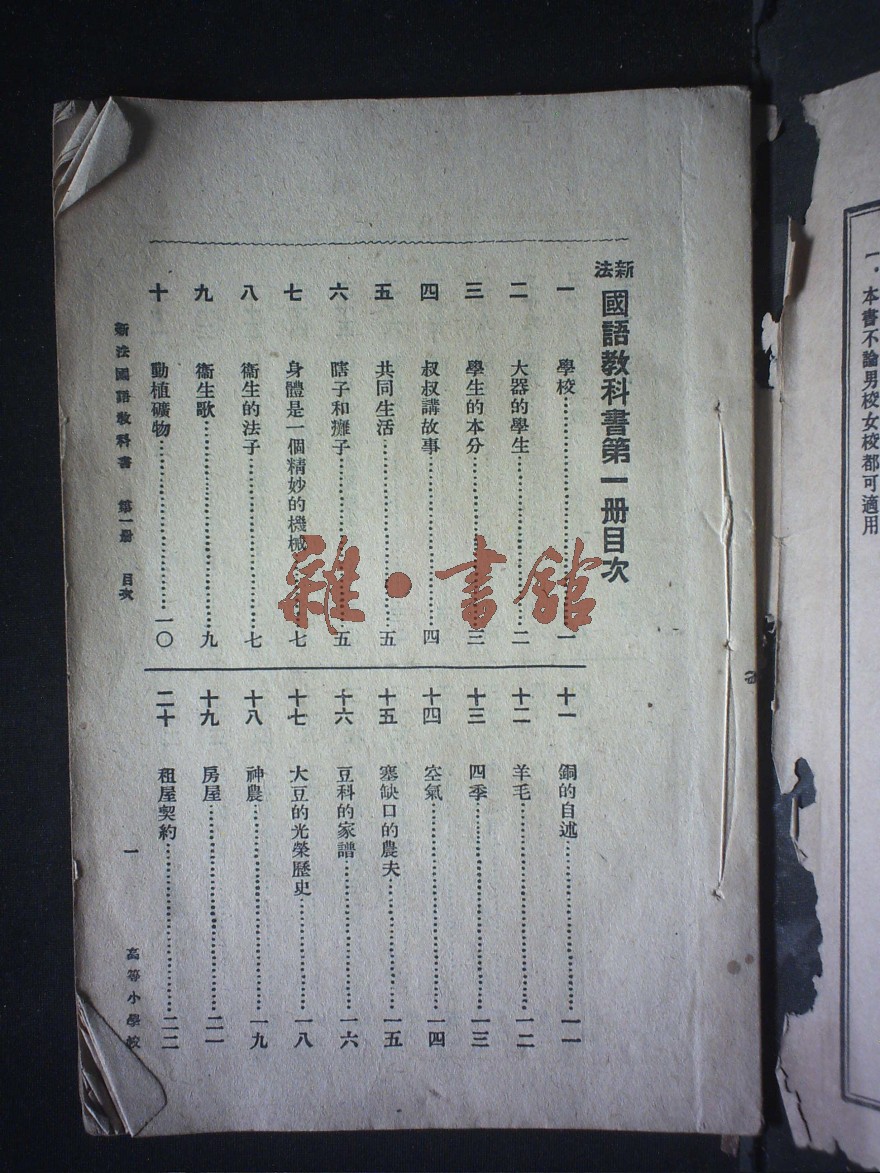 一，本書不論男校女校都可適用
新法國語敎科書第一册目次
一 學校……一
二 大器的學生……二
三 學生的本分……三
四 叔叔講故事……四
五 共同生活……五
六 瞎子和癱子……五
七 身體是一個精妙的機械……七
八 衞生的法子……七
九 衞生歌……九
十 動植礦物……一〇
十一 銅的自述……一一
十二 羊毛……一二
十三 四季……一三
十四 空氣……一四
十五 塞缺口的農夫……一五
十六 豆科的家譜……一六
十七 大豆的光榮歷史……一八
十八 神農……一九
十九 房屋……二一
二十 租屋契約……二二
新法國語敎科書 第一册 目次 一 高等小學校
雜·書館